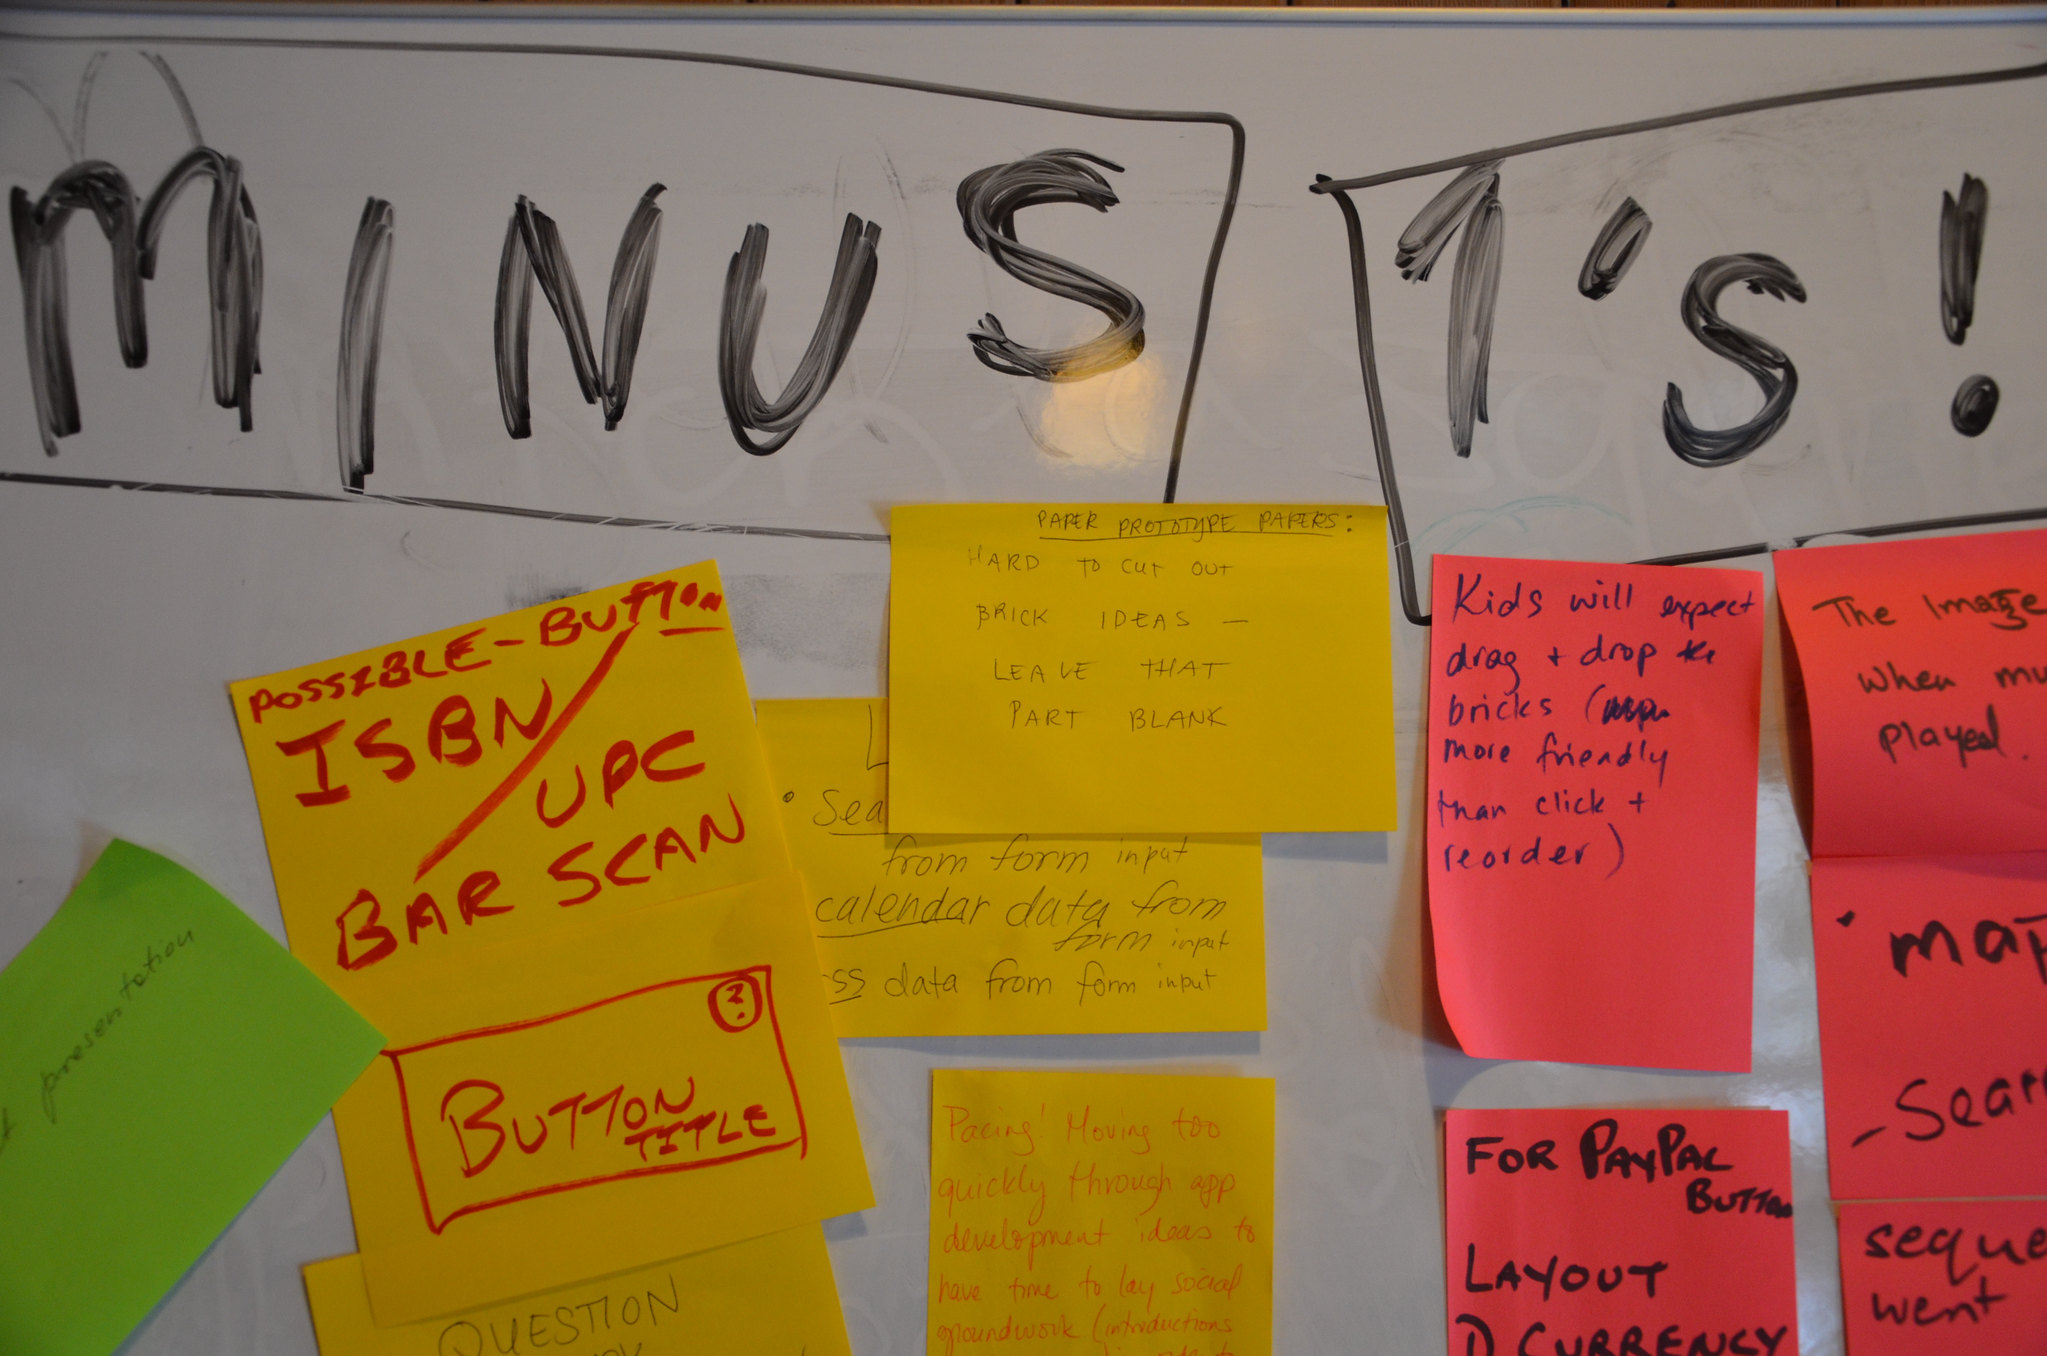 MINUS 1's!
PAPER PROTOTYPE PAPERS:
HARD TO CUT OUT
BRICK IDEAS —
LEAVE THAT
PART BLANK
POSSIBLE-BUTTON
ISBN /
UPC
BAR SCAN
?
BUTTON
TITLE
presentation
from form input
calendar data from
form input
ss data from form input
QUESTION
Pacing! Moving too
quickly through app
development ideas to
have time to lay social
groundwork (introductions
Kids will expect
drag + drop
bricks (
more friendly
than click +
reorder)
The Image
when
played.
• map
- Sear
FOR PAYPAL
BUTTON
LAYOUT
1) CURRENCY
seque
went